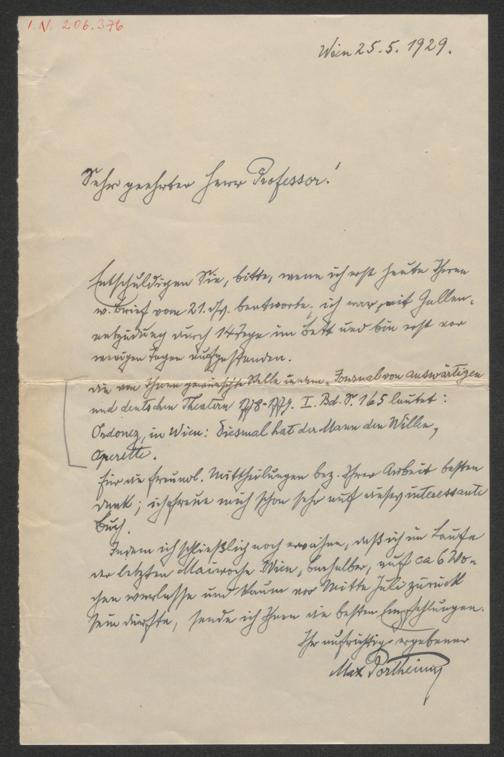 I.N. 206.376
Wien 25.5.1929.
Sehr geehrter Herr Professor!
Entschuldigen Sie, bitte, wenn ich erst heute Ihren
w. Brief vom 21. ds. beantworte; ich war, mit Gallen-
entzündung durch 14 Tage im Bett und bin erst vor
wenigen Tagen aufgestanden.
Die von Ihnen gewünschte Stelle in dem „Journal von auswärtigen
und deutschen Theatern 778-779. I. Bd. S. 165 lautet:
Ordonez, in Wien: Diesmal hat der Mann den Willen,
Operette.
Für die freundl. Mittheilungen bez. Ihrer Arbeit besten
Dank; ich freue mich schon sehr auf dieses interessante
Buch.
Indem ich schließlich noch erwähne, daß ich im Laufe
der letzten Maiwoche Wien, auf ca 6 Wo-
chen verlasse und kaum vor Mitte Juli zurück
sein dürfte, sende ich Ihnen die besten Empfehlungen.
Ihr aufrichtig ergebener
Max Portheim